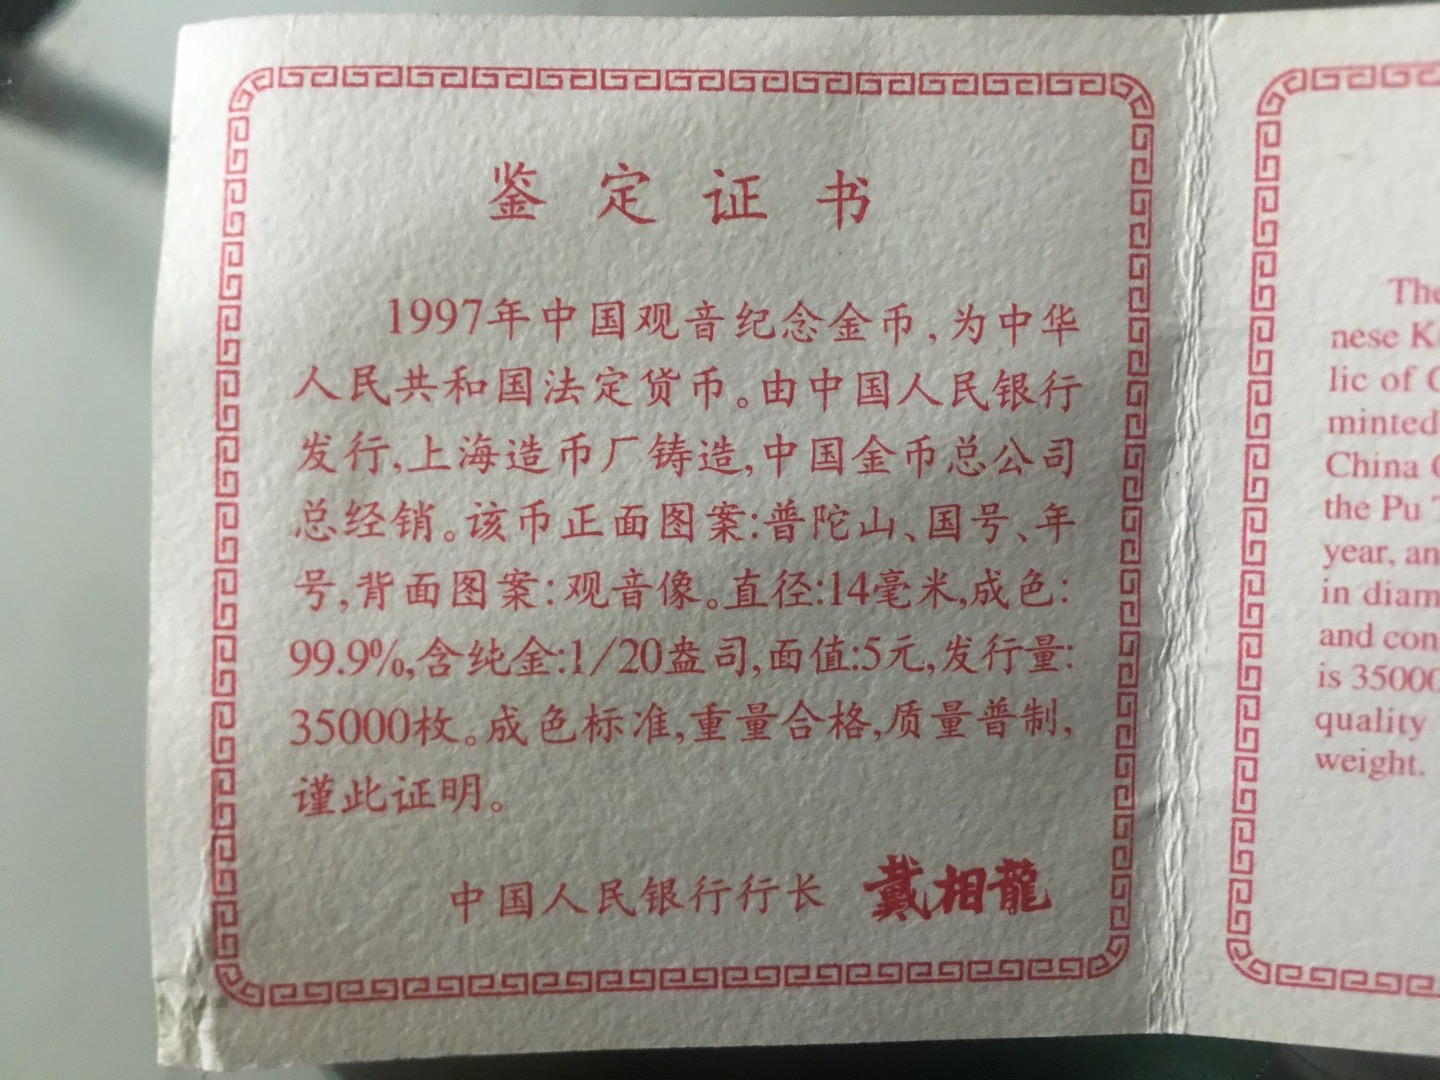 鉴定证书
1997年中国观音纪念金币,为中华
人民共和国法定货币。由中国人民银行
发行,上海造币厂铸造,中国金币总公司
总经销。该币正面图案:普陀山、国号、年
号,背面图案:观音像。直径:14毫米,成色:
99.9%,含纯金:1/20盎司,面值:5元,发行量:
35000枚。成色标准,重量合格,质量普制,
谨此证明。
中国人民银行行长 戴相龍
The
nese K
lic of
minted
China
the Pu
year, an
in diam
and con
is 35000
quality
weight.